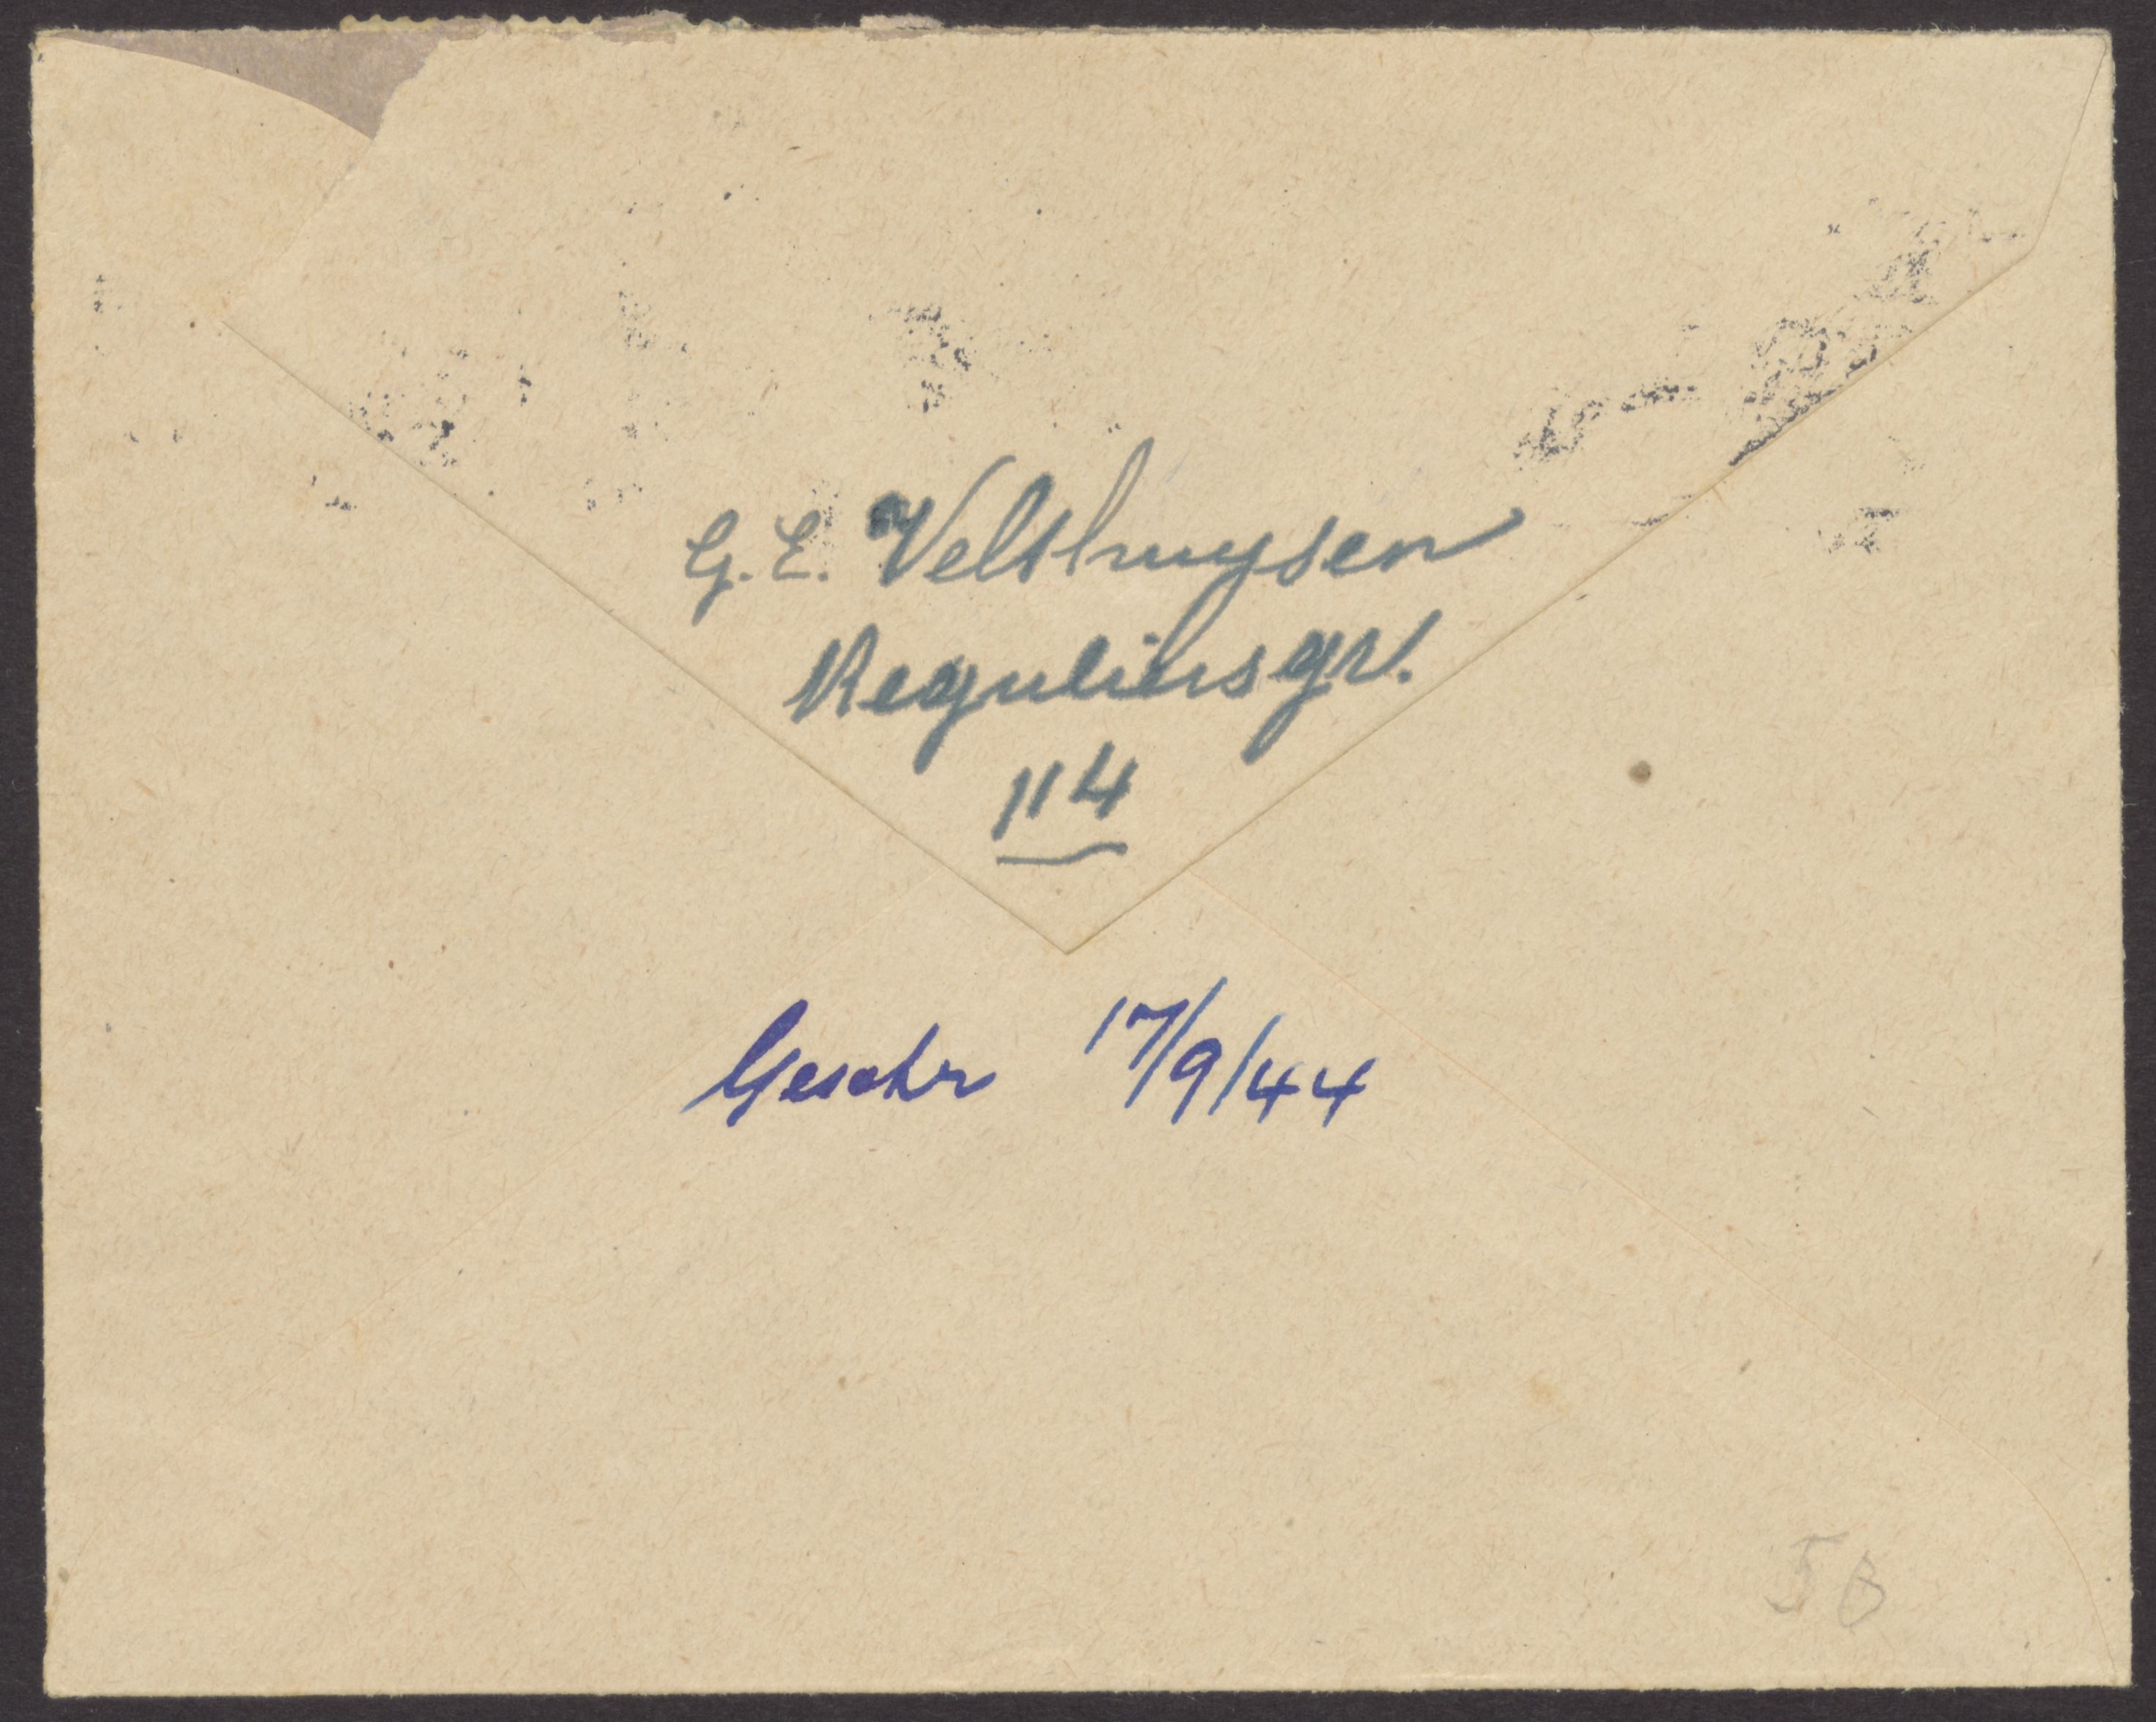 G. E. Velthuysen
Reguliersgr.
114
Geschr 17/9/44